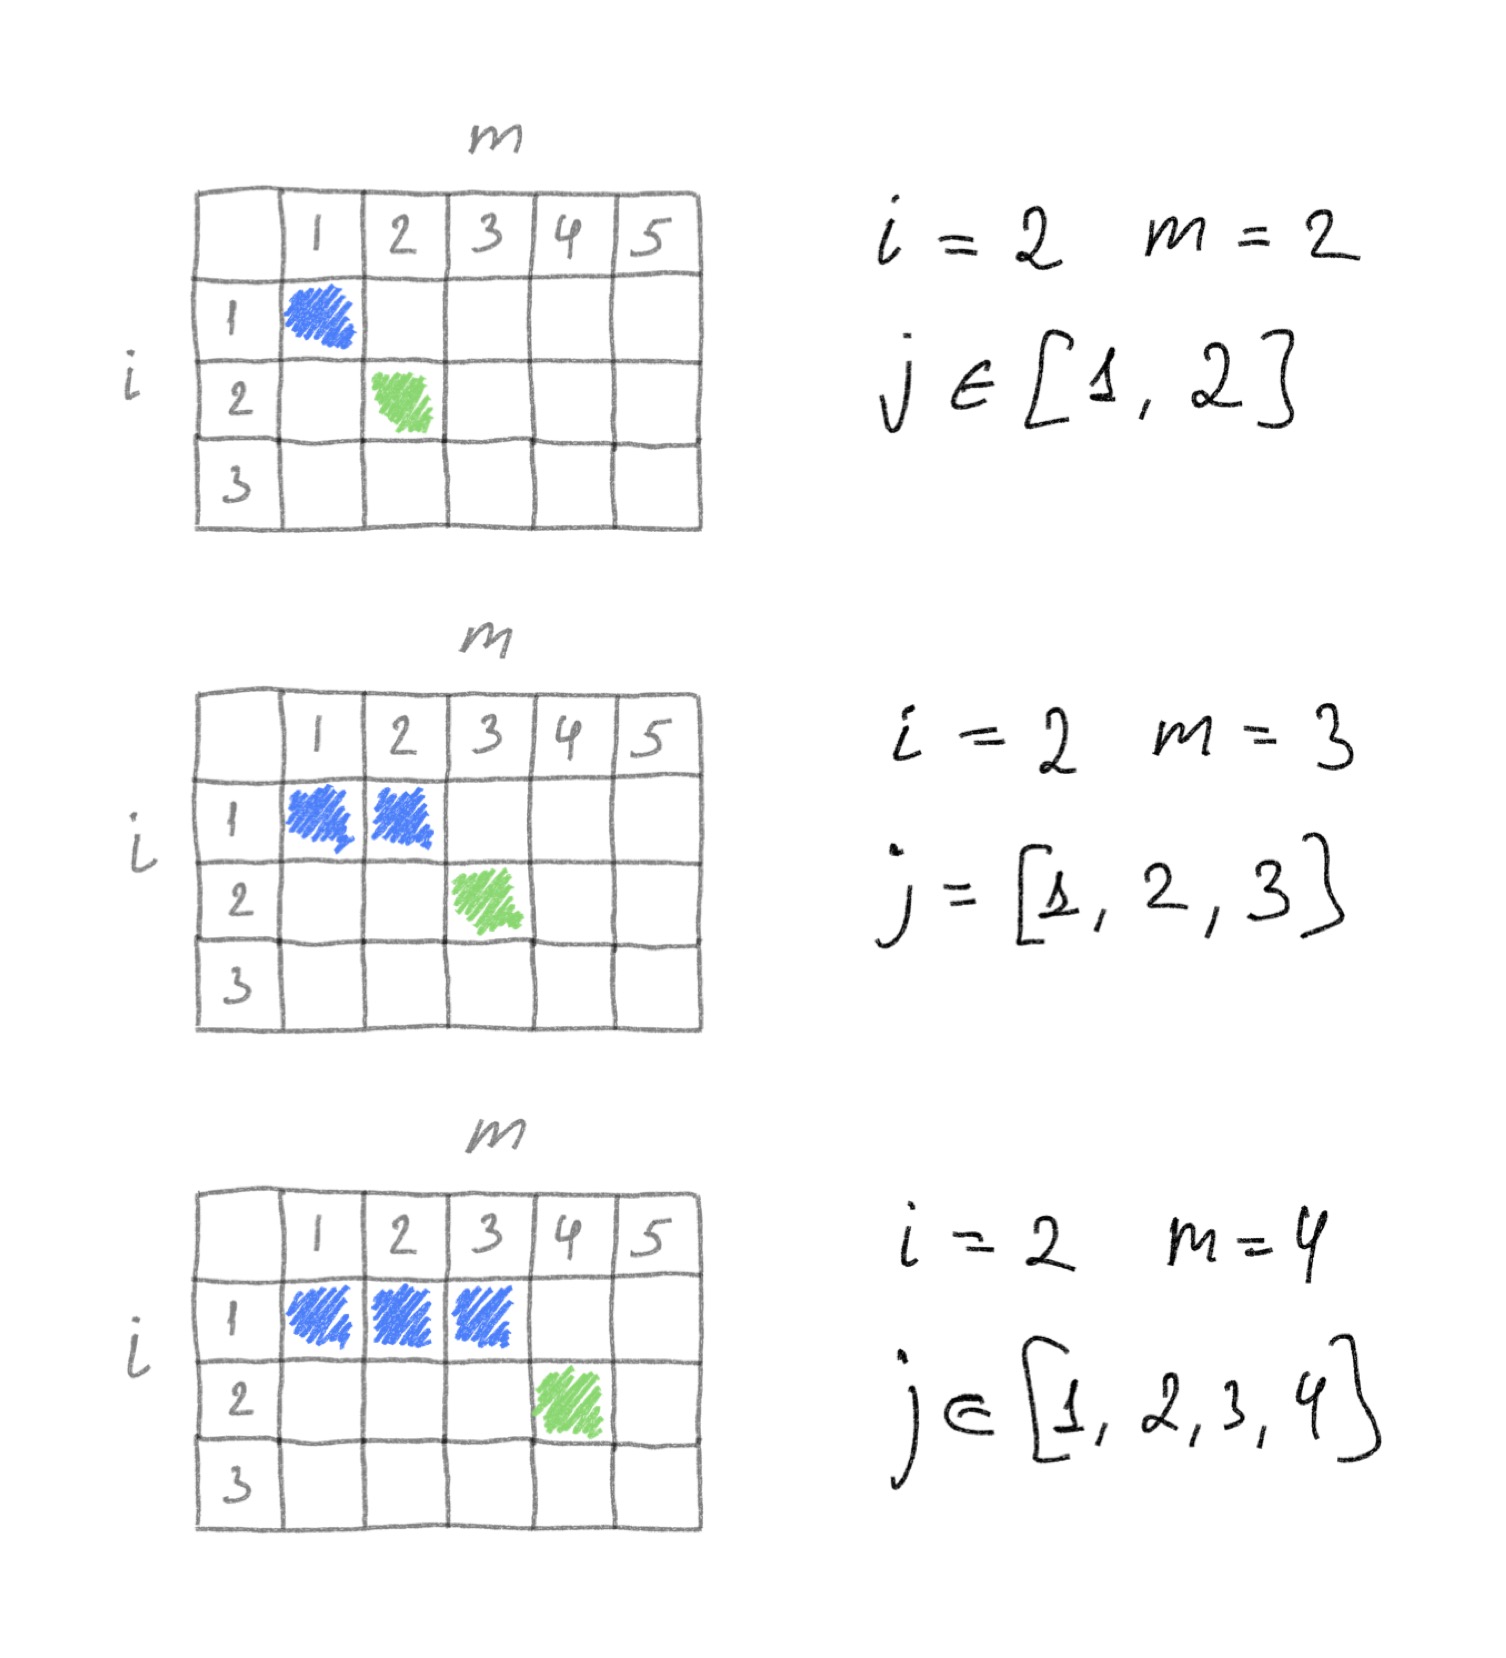 m
1 2 3 4 5
1
i
2
3
i = 2 m = 2
j ∈ [1, 2]
m
1 2 3 4 5
1
i
2
3
i = 2 m = 3
j = [1, 2, 3]
m
1 2 3 4 5
1
i
2
3
i = 2 m = 4
j ∈ [1, 2, 3, 4]